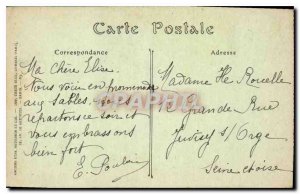 Carte Postale
Correspondance
Adresse
Ma Chère Elise
Nous voici en promenade
aux Sables. Nous
repartons ce soir et
vous embrassons bien
bien fort
E. Poulain
Madame He Rocelle
Grande Rue
Juvisy s/ Orge
Seine et Oise